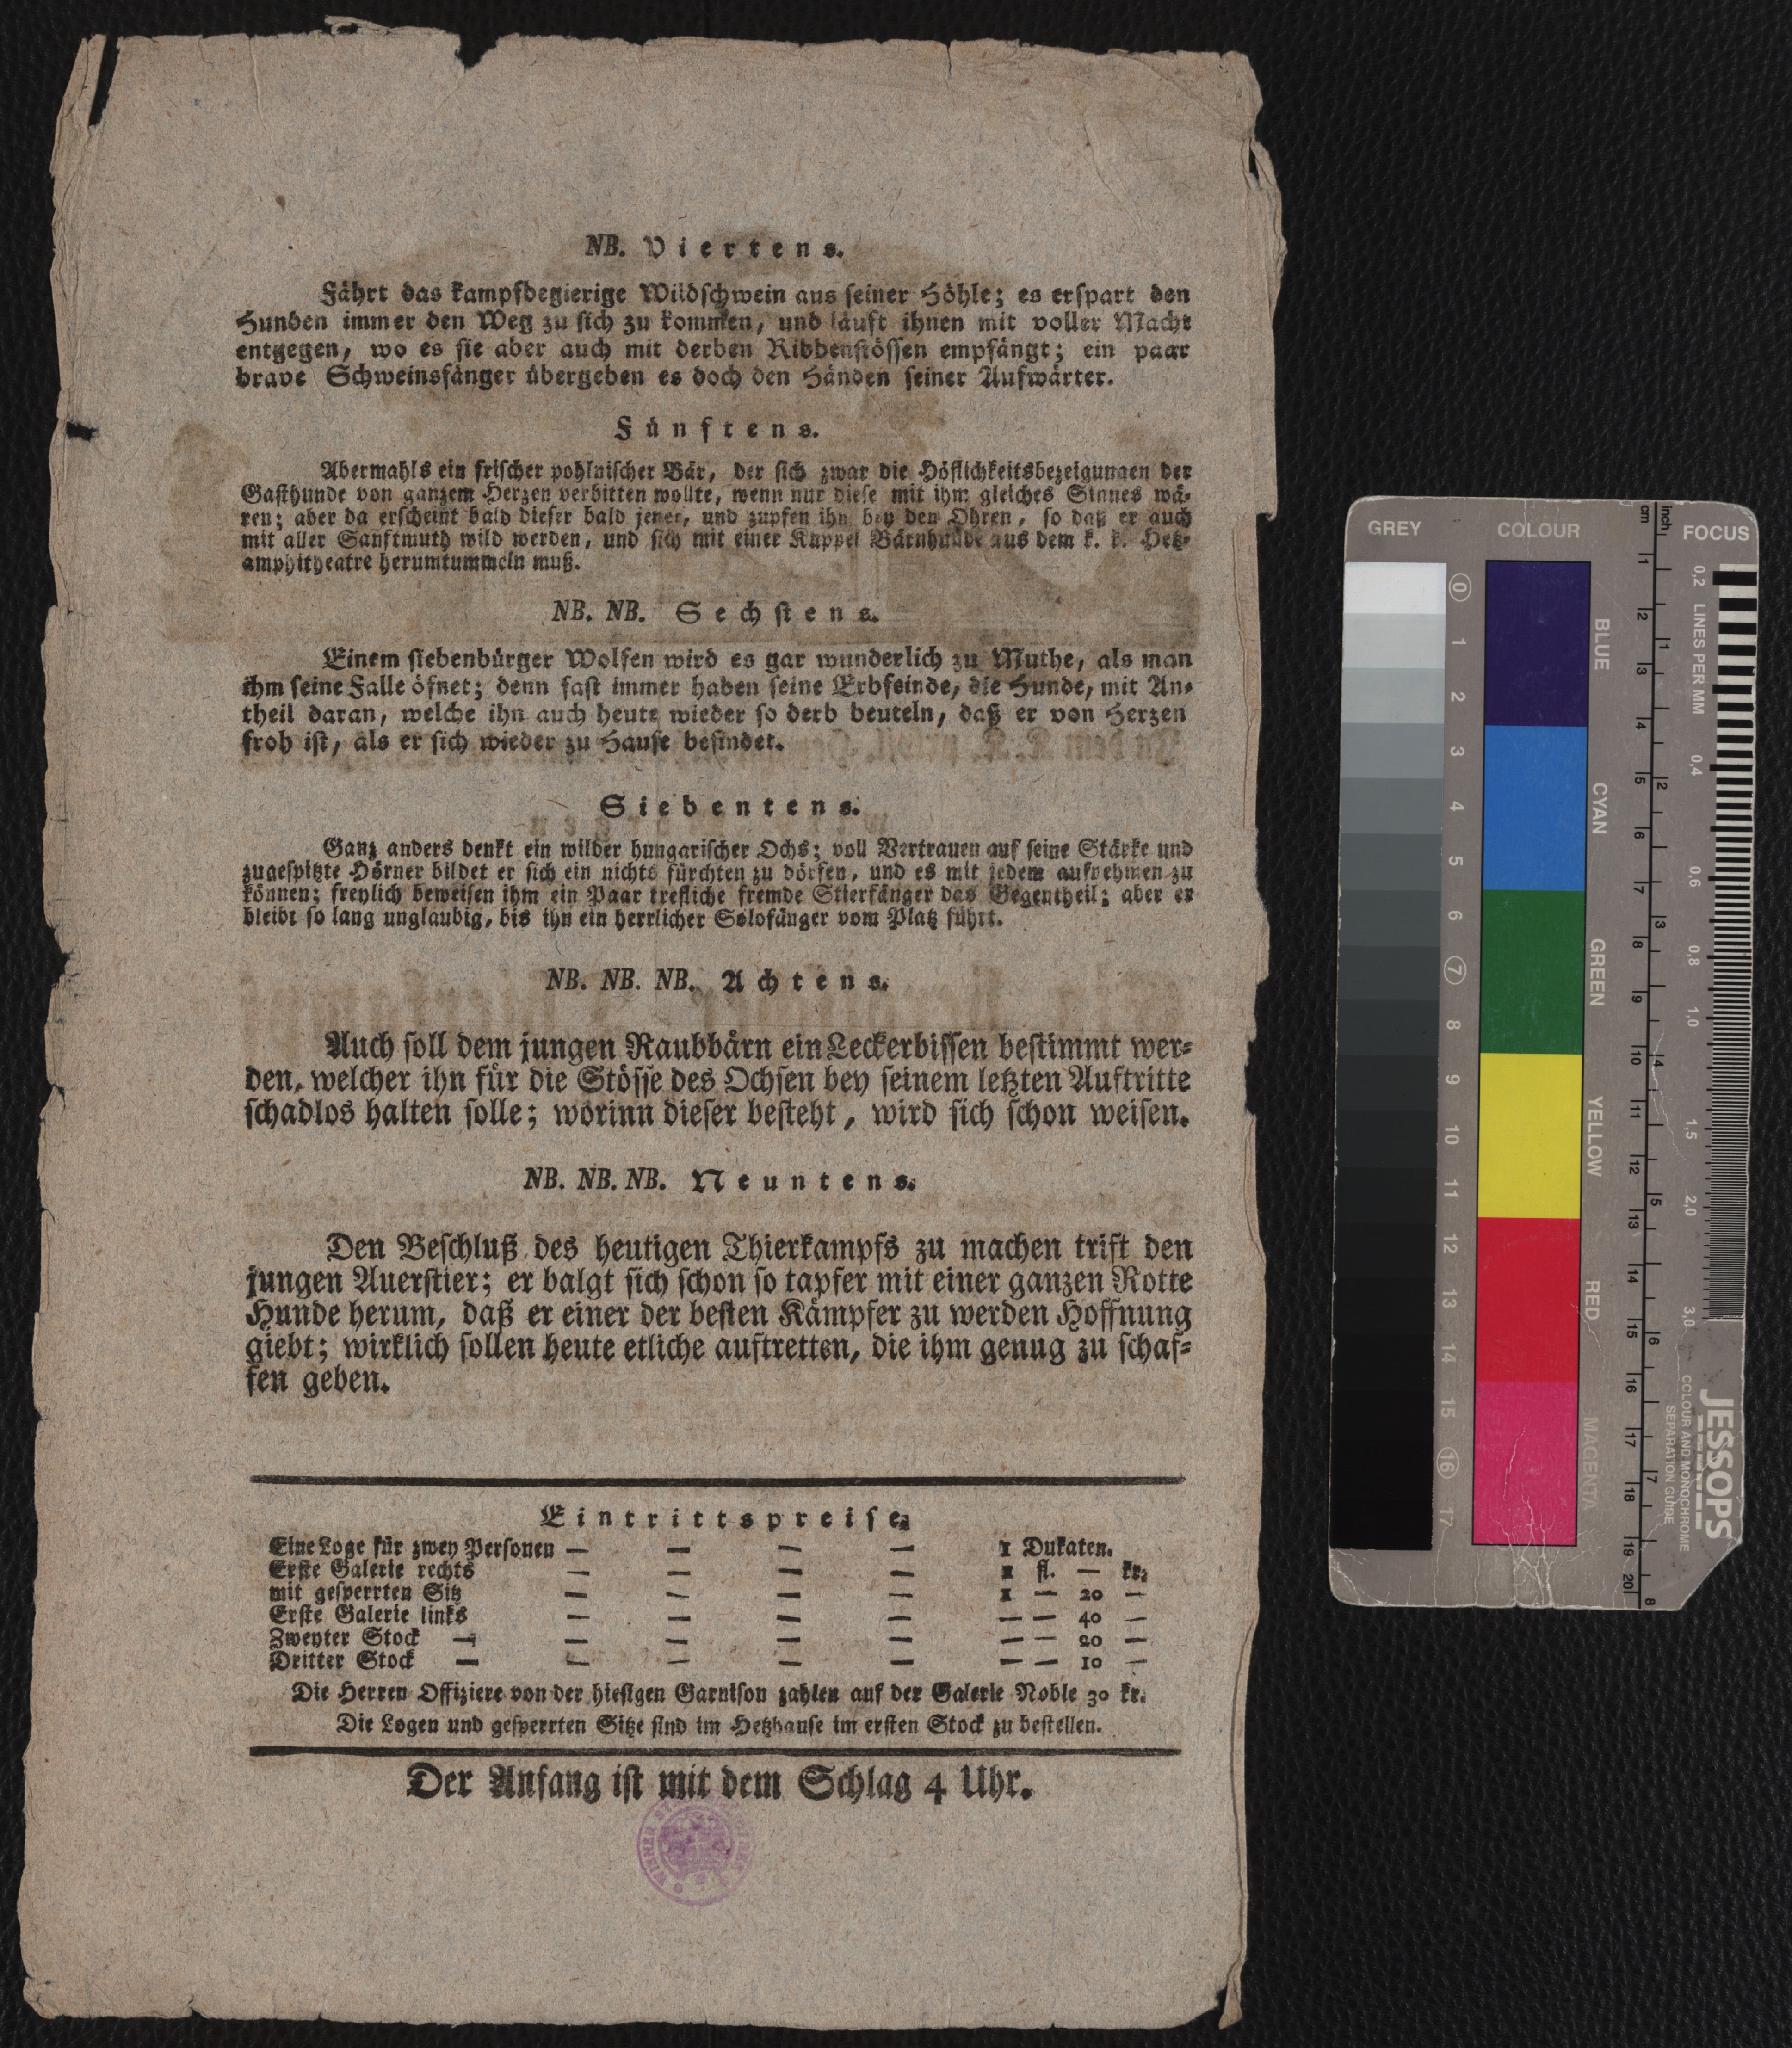 NB. Viertens.
Fährt das kampfbegierige Wildschwein aus seiner Höhle; es erspart den
Hunden immer den Weg zu sich zu kommen, und läuft ihnen mit voller Macht
entgegen, wo es sie aber auch mit derben Ribbenstössen empfängt; ein paar
brave Schweinsfänger übergeben es doch den Händen seiner Aufwärter.
Fünftens.
Abermahls ein frischer pohlnischer Bär, der sich zwar die Höflichkeitsbezeigungen der
Gasthunde von ganzem Herzen verbitten wollte, wenn nur diese mit ihm gleiches Sinnes wä-
ren; aber da erscheint bald dieser bald jener, und zupfen ihn bey den Ohren, so daß er auch
mit aller Sanftmuth wild werden, und sich mit einer Kuppel Bärnhunde aus dem k. k. Hetz-
amphitheatre herumtummeln muß.
NB. NB. Sechstens.
Einem siebenbürger Wolfen wird es gar wunderlich zu Muthe, als man
ihm seine Falle öfnet; denn fast immer haben seine Erbfeinde, die Hunde, mit An-
theil daran, welche ihn auch heute wieder so derb beuteln, daß er von Herzen
froh ist, als er sich wieder zu Hause befindet.
Siebentens.
Ganz anders denkt ein wilder hungarischer Ochs; voll Vertrauen auf seine Stärke und
zugespitzte Hörner bildet er sich ein nichts fürchten zu dörfen, und es mit jedem aufnehmen zu
können; freylich beweisen ihm ein Paar trefliche fremde Stierfänger das Gegentheil; aber er
bleibt so lang unglaubig, bis ihn ein herrlicher Solofänger vom Platz führt.
NB. NB. NB. Achtens.
Auch soll dem jungen Raubbärn ein Leckerbissen bestimmt wer-
den, welcher ihn für die Stösse des Ochsen bey seinem letzten Auftritte
schadlos halten solle; worinn dieser besteht, wird sich schon weisen.
NB. NB. NB. Neuntens.
Den Beschluß des heutigen Thierkampfs zu machen trift den
jungen Auerstier; er balgt sich schon so tapfer mit einer ganzen Rotte
Hunde herum, daß er einer der besten Kämpfer zu werden Hoffnung
giebt; wirklich sollen heute etliche auftretten, die ihm genug zu schaf-
fen geben.
Eintrittspreise.
Eine Loge für zwey Personen — — — — 1 Dukaten.
Erste Galerie rechts — — — — 1 fl. — kr.
mit gesperrten Sitz — — — — 1 — 20 —
Erste Galerie links — — — — — — 40 —
Zweyter Stock — — — — — — — 20 —
Dritter Stock — — — — — — — 10 —
Die Herren Offiziere von der hiesigen Garnison zahlen auf der Galerie Noble 30 kr.
Die Logen und gesperrten Sitze sind im Hetzhause im ersten Stock zu bestellen.
Der Anfang ist mit dem Schlag 4 Uhr.
GREY COLOUR FOCUS
cm inch
0 1 2 3 4 5 6 7 8 9 10 11 12 13 14 15 16 17
BLUE
CYAN
GREEN
YELLOW
RED
MAGENTA
1 2 3 4 5 6 7 8 9 10 11 12 13 14 15 16 17 18 19 20
1 2 3 4 5 6 7 8
LINES PER MM
0,2 0,4 0,6 0,8 1,0 1,5 2,0 3,0
JESSOPS
COLOUR AND MONOCHROME
SEPARATION GUIDE